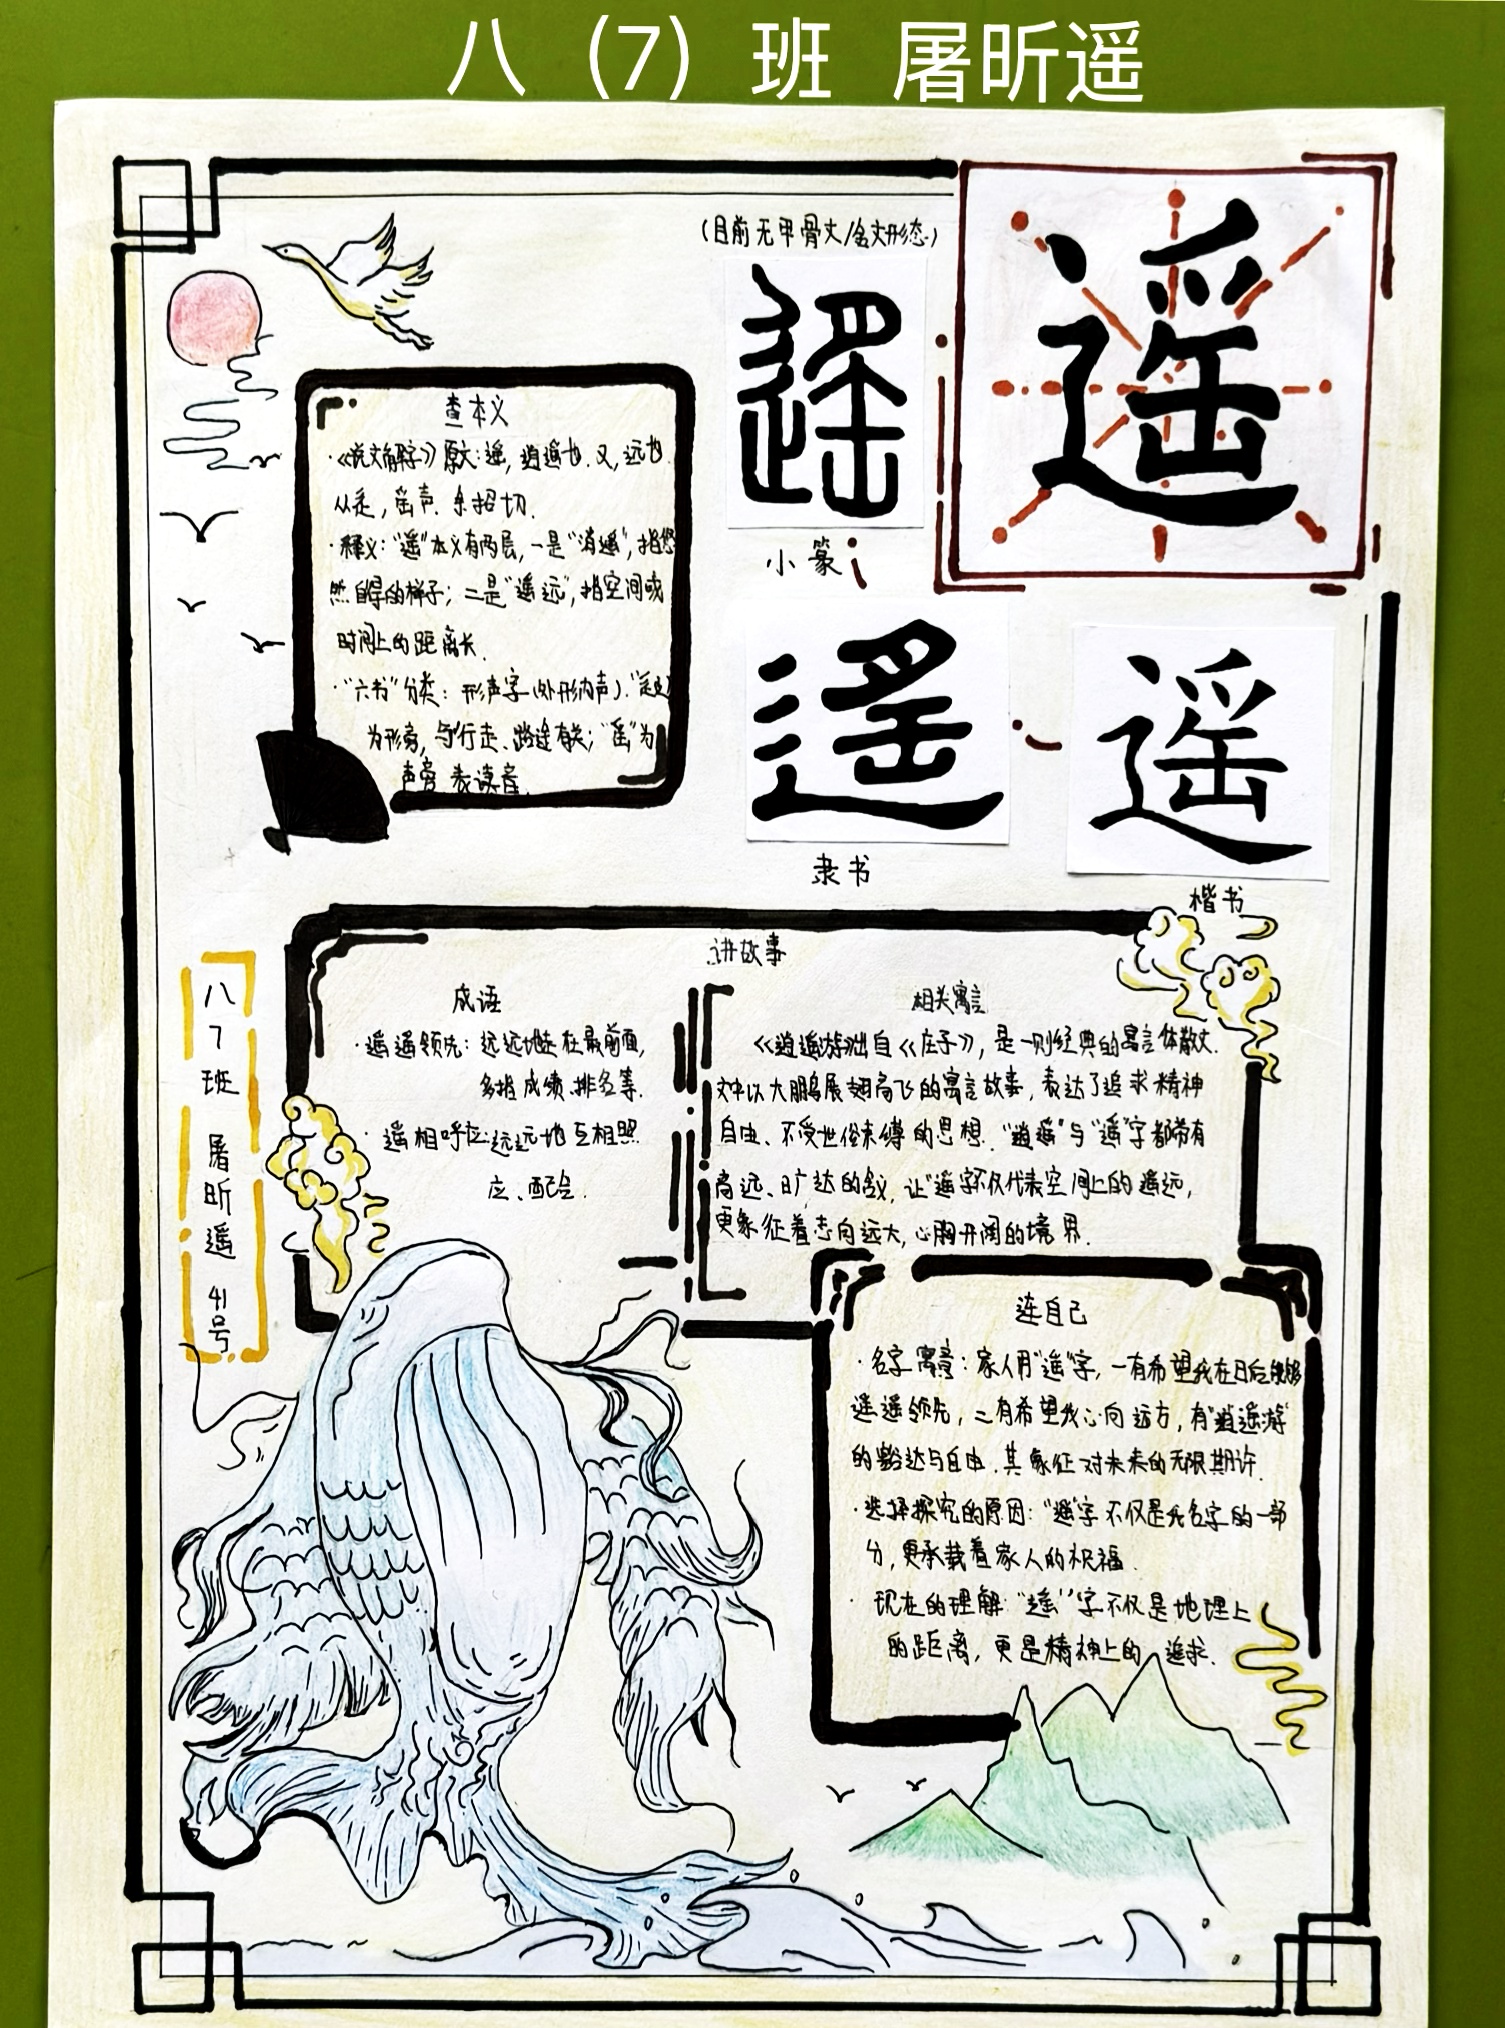 八（7）班 屠昕遥
（目前无甲骨文/金文形态）
遥
遥
小篆
遥
隶书
遥
楷书
查本义
·《说文解字》原文：遥，逍遥也．又，远也．
从辵，䍃声．余招切．
·释义：“遥”本义有两层，一是“逍遥”，指悠
然自得的样子；二是“遥远”，指空间或
时间上的距离长．
·“六书”分类：形声字（外形内声）．“辶”
为形旁，与行走、路途有关；“䍃”为
声旁 表读音．
讲故事
成语
·遥遥领先：远远地走在最前面，
多指成绩、排名等．
·遥相呼应：远远地互相照
应、配合．
相关寓言
《逍遥游》出自《庄子》，是一则经典的寓言体散文．
文中以大鹏展翅高飞的寓言故事，表达了追求精神
自由、不受世俗束缚的思想．“逍遥”与“遥”字都带有
高远、旷达的含义，让“遥”字不仅代表空间上的遥远，
更象征着志向远大，心胸开阔的境界．
八
7
班
屠
昕
遥
41
号
连自己
·名字寓意：家人用“遥”字，一有希望我在日后能够
遥遥领先，二有希望我心向远方，有“逍遥游”
的豁达与自由．其象征对未来的无限期许．
·选择探究的原因：“遥”字不仅是我名字的一部
分，更承载着家人的祝福．
·现在的理解：“遥”字不仅是地理上
的距离，更是精神上的追求．